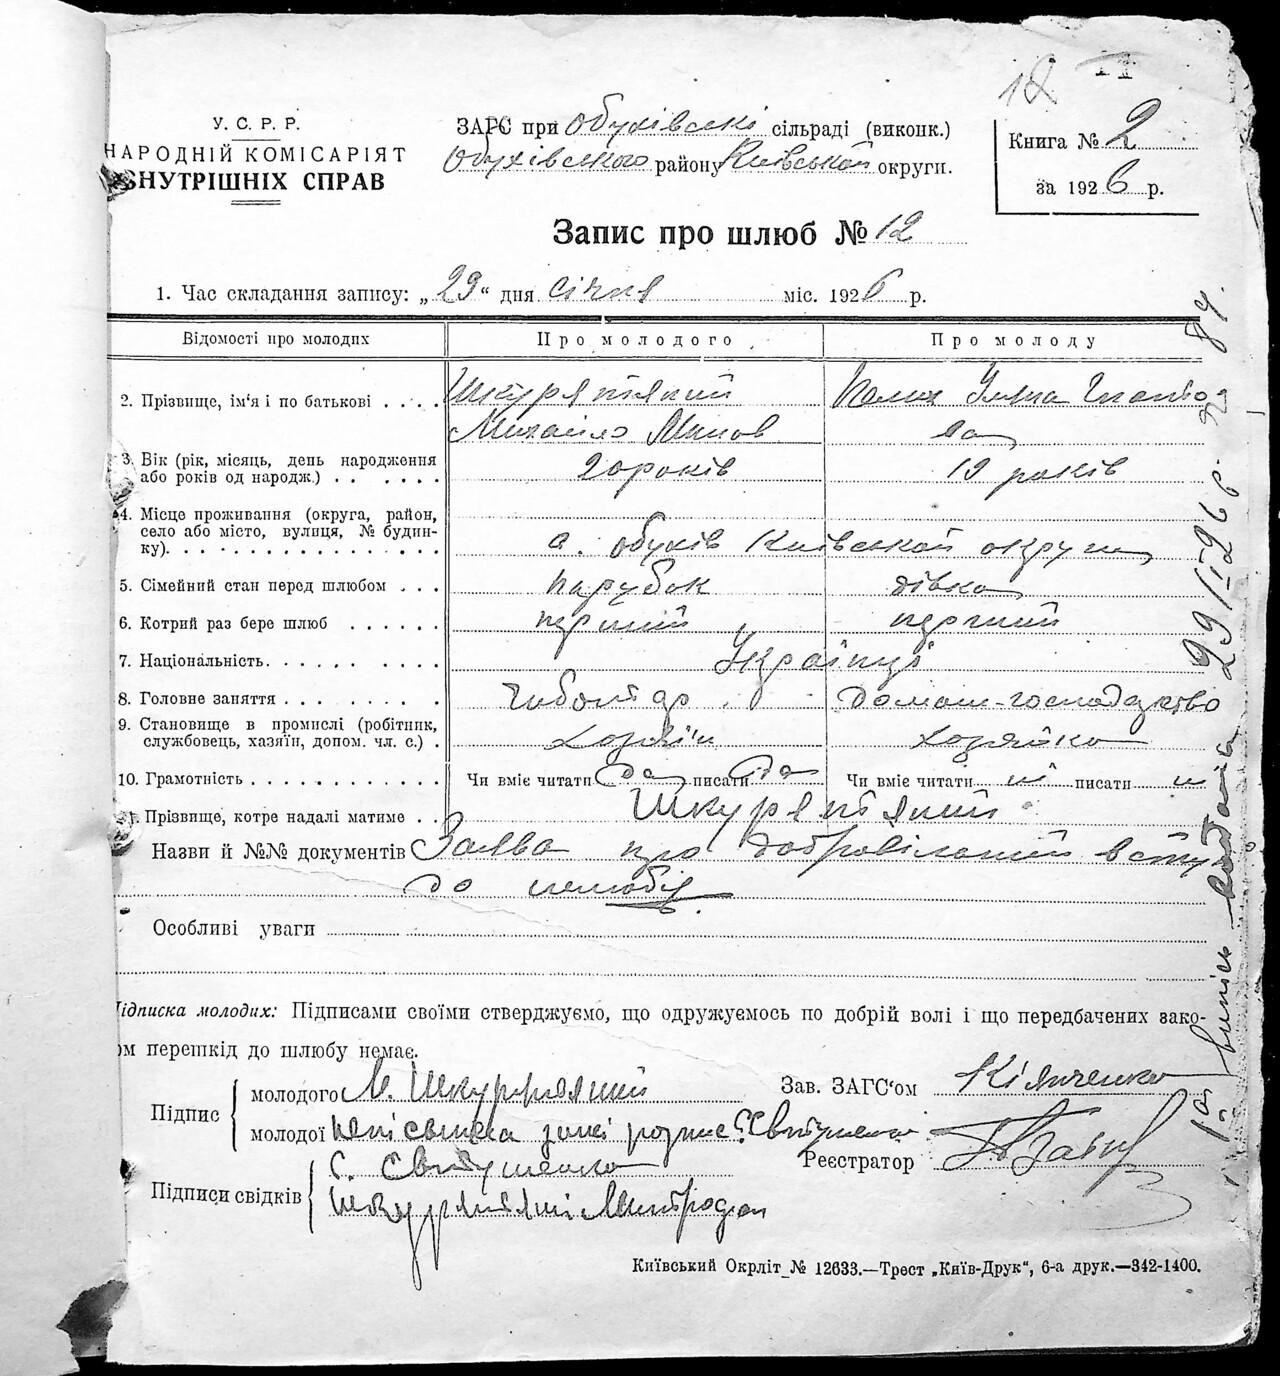 12
У. С. Р. Р.
НАРОДНІЙ КОМІСАРІЯТ
ВНУТРІШНІХ СПРАВ
ЗАГС при Обухівські сільраді (виконк.)
Обухівського району Київської округи.
Книга № 2
за 1926 р.
Запис про шлюб № 12
1. Час складання запису: „29“ дня січня міс. 1926 р.
Відомості про молодих
Про молодого
Про молоду
2. Прізвище, ім'я і по батькові . . . .
Шкурятяний
Михайло
Уляна
3. Вік (рік, місяць, день народження
або років од народж.) . . . . . .
20 років
19 років
4. Місце проживання (округа, район,
село або місто, вулиця, № будин-
ку). . . . . . . . . . . . . . .
с. Обухів Київської округи
5. Сімейний стан перед шлюбом . . .
парубок
дівка
6. Котрий раз бере шлюб . . . . . .
перший
перший
7. Національність. . . . . . . . . .
Українці
8. Головне заняття . . . . . . . . .
Чоботар
Домаш-господарство
9. Становище в промислі (робітник,
службовець, хазяїн, допом. чл. с.) .
хазяїн
хозяйка
10. Грамотність . . . . . . . . . . .
Чи вміє читати да писати да
Чи вміє читати ні писати ні
Прізвище, котре надалі матиме . .
Шкурятяний
Назви й №№ документів Заява про добровільний вступ
до шлюбу
Особливі уваги
Підписка молодих: Підписами своїми стверджуємо, що одружуємось по добрій волі і що передбачених зако-
ом перешкід до шлюбу немає.
Підпис
молодого М. Шкурятяний
молодої неписьменна за неї розпис. С. Євтушенко
Зав. ЗАГС'ом
Реєстратор
Підписи свідків
С. Євтушенко
Шкурятяний Митрофан
Київський Окрліт № 12633.—Трест „Київ-Друк“, 6-а друк.—342-1400.